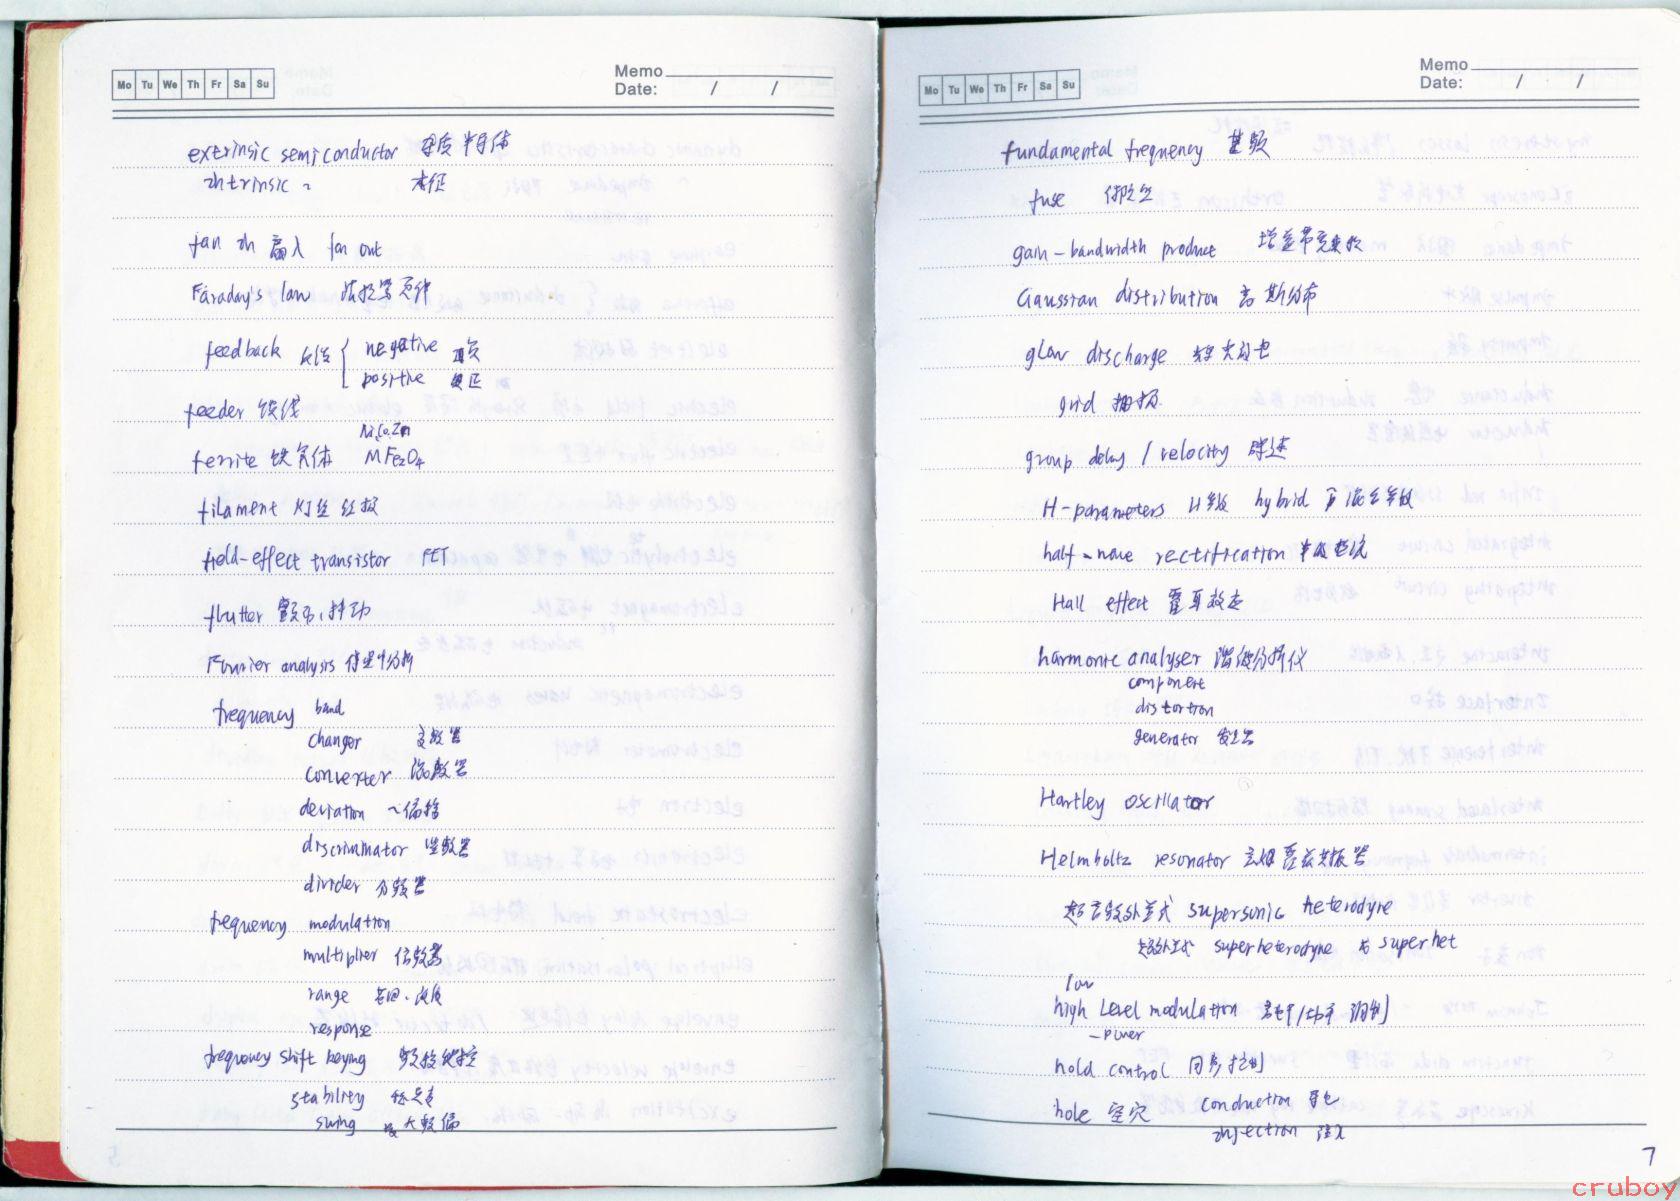 Mo Tu We Th Fr Sa Su
Memo
Date: / /
extrinsic semiconductor 杂质半导体
intrinsic ~ 本征
fan in 扇入 fan out
Faraday's law 法拉第定律
feedback 反馈 { negative 负
positive 正
feeder 馈线
Ni,Co,Zn
ferrite 铁氧体 MFe2O4
filament 灯丝
field-effect transistor FET
flutter 颤动,抖动
Fourier analysis 傅里叶分析
frequency band
changer 变频器
converter 混频器
deviation ~偏移
discriminator 鉴频器
divider 分频器
frequency modulation
multiplier 倍频器
range 范围、波段
response
frequency shift keying 频移键控
stability 稳定度
swing 最大频偏
Mo Tu We Th Fr Sa Su
Memo
Date: / /
fundamental frequency 基频
fuse 保险丝
gain-bandwidth product 增益带宽乘积
Gaussian distribution 高斯分布
glow discharge 辉光放电
grid 栅极
group delay / velocity 群速
H-parameters H参数 hybrid 混合参数
half-wave rectification 半波整流
Hall effect 霍耳效应
harmonic analyser 谐波分析仪
component
distortion
generator 发生器
Hartley oscillator
Helmholtz resonator 亥姆霍兹共振器
超音频外差式 supersonic heterodyne
超外差式 superheterodyne 或 superhet
low
high Level modulation 高电平/低电平 调制
-power
hold control 同步控制
hole 空穴 conduction 导电
injection 注入
7
cruboy